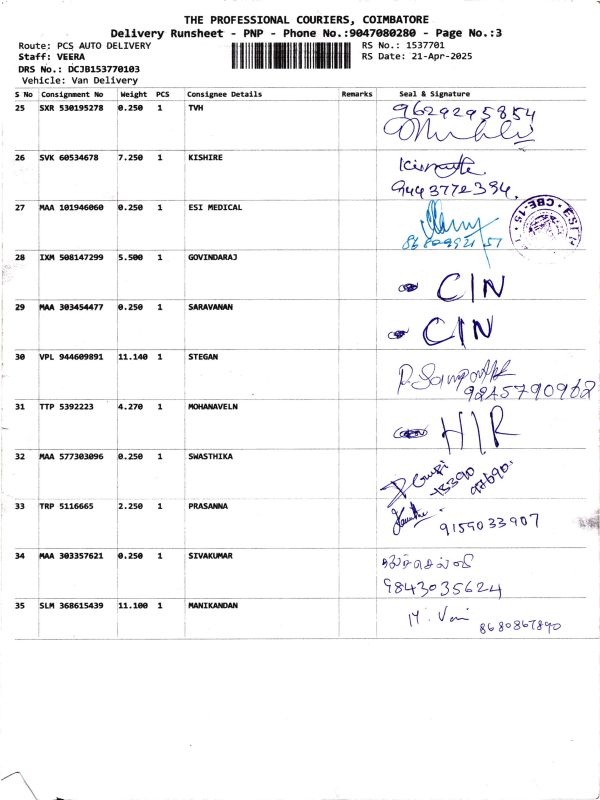 THE PROFESSIONAL COURIERS, COIMBATORE
Delivery Runsheet - PNP - Phone No.:9047080280 - Page No.:3
Route: PCS AUTO DELIVERY RS No.: 1537701
Staff: VEERA RS Date: 21-Apr-2025
DRS No.: DCJB153770103
Vehicle: Van Delivery
S No Consignment No Weight PCS Consignee Details Remarks Seal & Signature
25 SXR 530195278 0.250 1 TVH 9629295854
26 SVK 60534678 7.250 1 KISHIRE
9443772394.
27 MAA 101946060 0.250 1 ESI MEDICAL
CBE-15
28 IXM 508147299 5.500 1 GOVINDARAJ
CIN
29 MAA 303454477 0.250 1 SARAVANAN
CIN
30 VPL 944609891 11.140 1 STEGAN
9245790962
31 TTP 5392223 4.270 1 MOHANAVELN
H/R
32 MAA 577303096 0.250 1 SWASTHIKA
33 TRP 5116665 2.250 1 PRASANNA
9159033907
34 MAA 303357621 0.250 1 SIVAKUMAR
9843035624
35 SLM 368615439 11.100 1 MANIKANDAN
8680867890